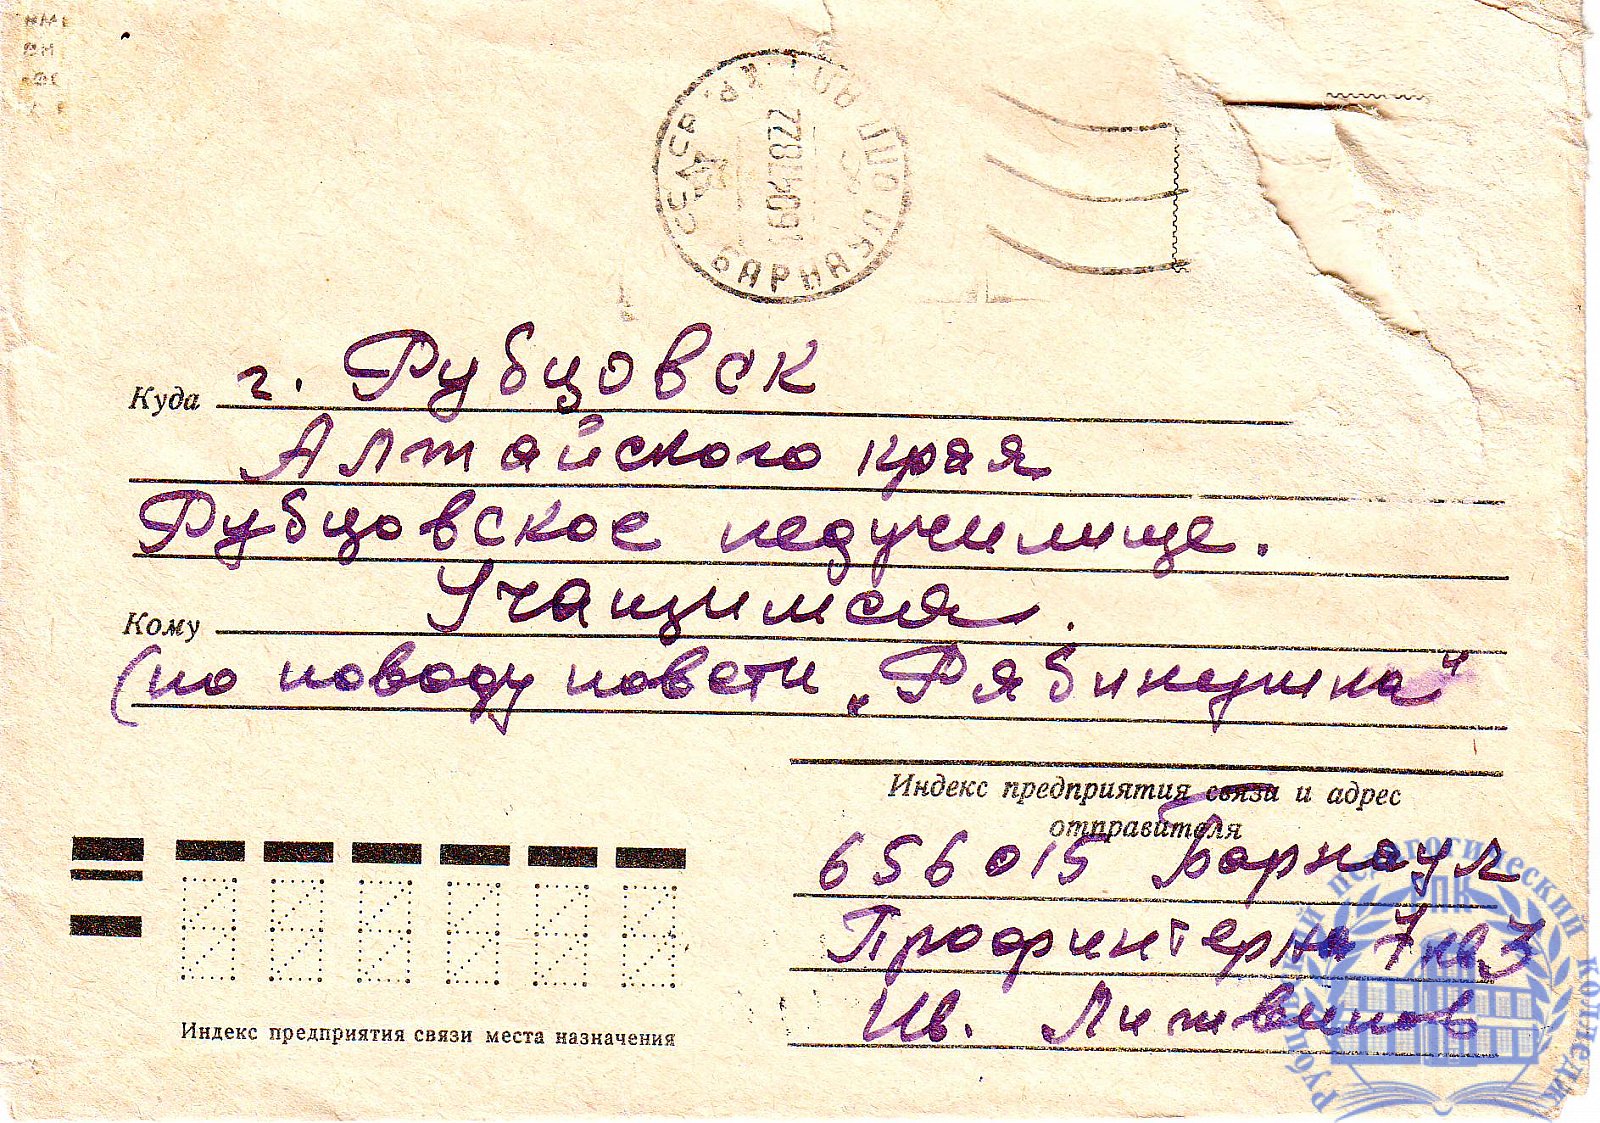 СССР
БАРНАУЛ
16047822
Куда г. Рубцовск
Алтайского края
Рубцовское педучилище.
Кому Учащимся.
(по поводу повести „Рябинушка"
Индекс предприятия связи и адрес
отправителя
656015 Барнаул
Профинтерна 7 кв 3
Ив. Литвинов
Индекс предприятия связи места назначения
Рубцовский педагогический колледж
РПК